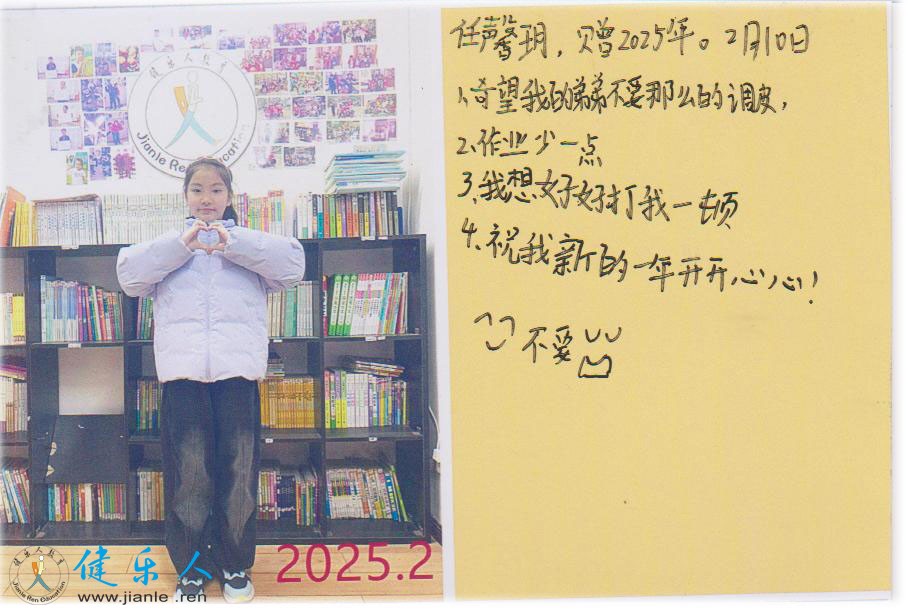 健乐人教育
Jianle Ren Education
任馨玥,赠2025年。2月10日
1.希望我的弟弟不要那么的调皮,
2、作业少一点
3.我想好好打我一顿
4、祝我新的一年开开心心!
不要
健乐人教育
Jianle Ren Education
健乐人
www.jianle .ren
2025.2